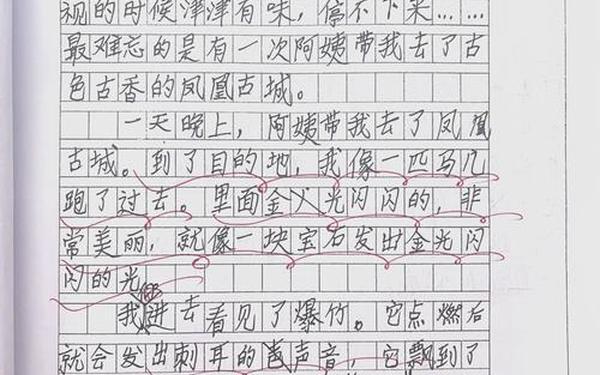 视的时候津津有味，停不下来……
最难忘的是有一次阿姨带我去了古
色古香的凤凰古城。
一天晚上，阿姨带我去了凤凰
古城。到了目的地，我像一匹马儿
跑了过去。里面金光闪闪的，非
常美丽，就像一块宝石发出金光闪
闪的光
我进去看见了爆竹。它点燃后
就会发出刺耳的声音，它飘到了